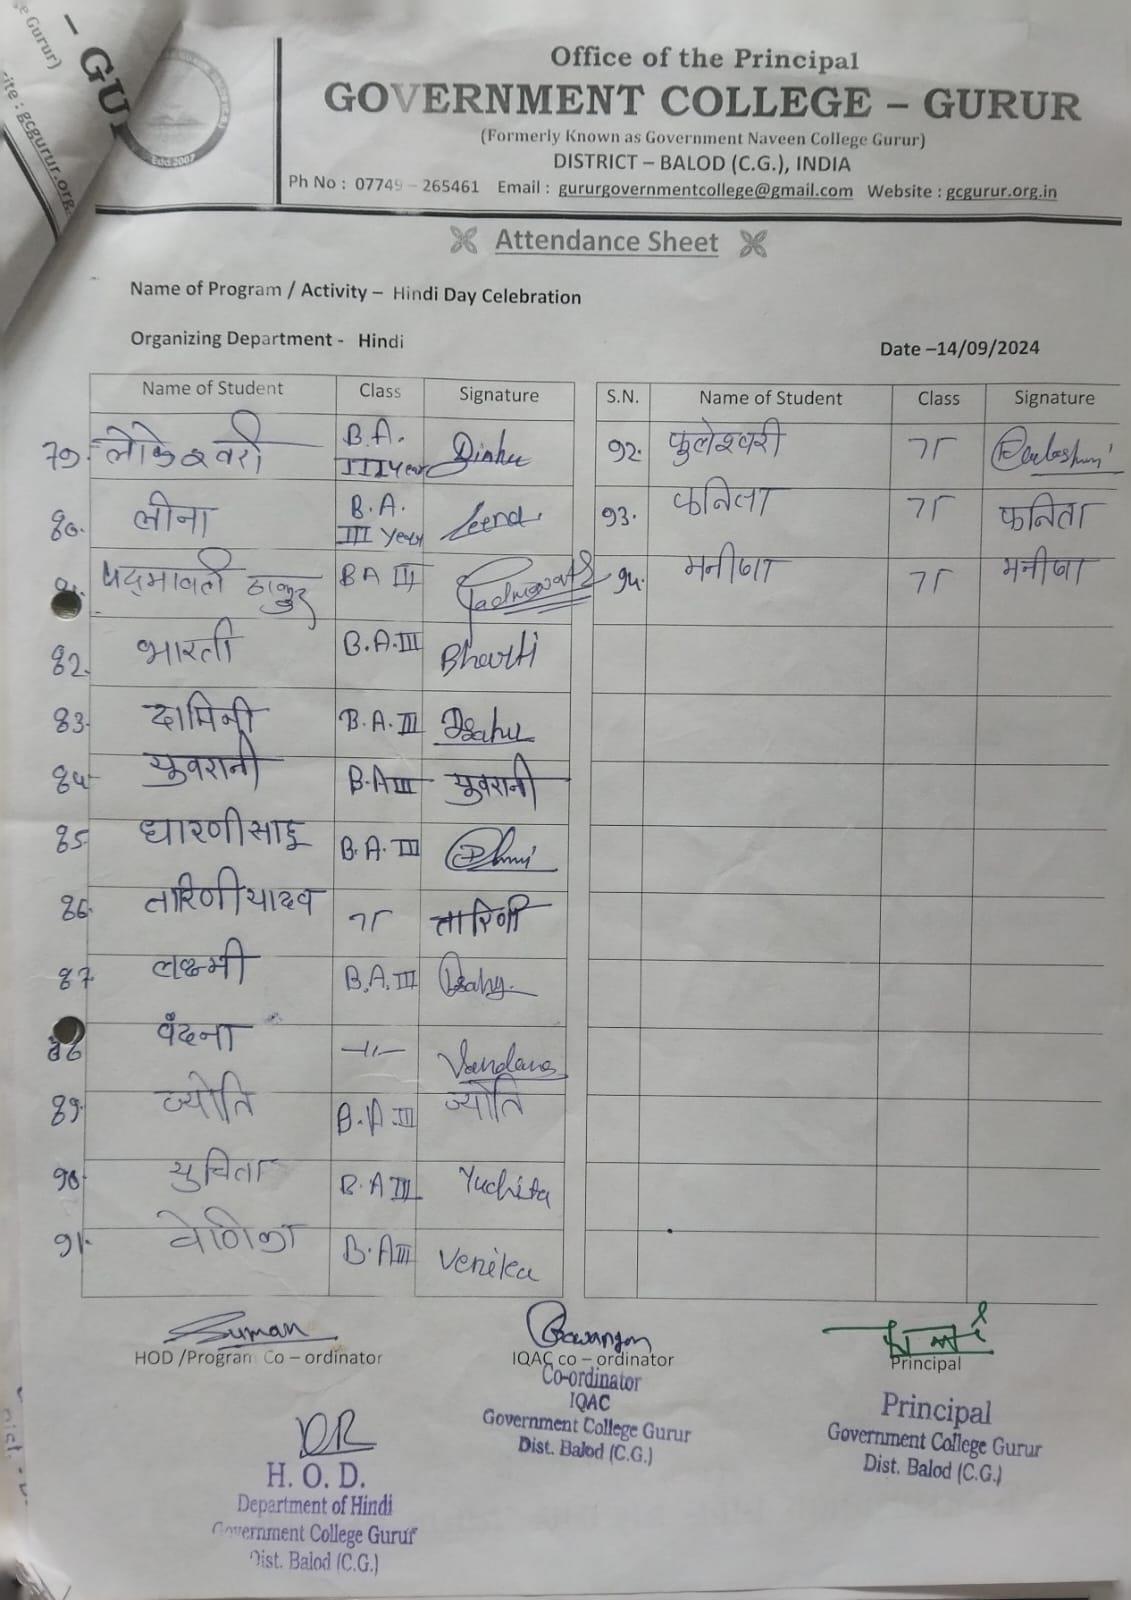 e Gurur)
ite : gcgurur.org.
– GU
Estd 2007
Office of the Principal
GOVERNMENT COLLEGE – GURUR
(Formerly Known as Government Naveen College Gurur)
DISTRICT – BALOD (C.G.), INDIA
Ph No : 07749 – 265461 Email : gururgovernmentcollege@gmail.com Website : gcgurur.org.in
Attendance Sheet
Name of Program / Activity – Hindi Day Celebration
Organizing Department - Hindi
Date –14/09/2024
Name of Student Class Signature
79. लोकेश्वरी B.A. III Year
80. लीना B.A. III Year Leena
पद्मावती ठाकुर BA III Padmawati
82. भारती B.A.III Bharti
83. दामिनी B.A.III Dsahu
84 युवरानी B.A III युवरानी
85 धारणी साहू B.A.III
86. तारिणी यादव 11 तारिणी
87 लक्ष्मी B.A.III
88 वंदना –11– Vandana
89. ज्योति B.A.III ज्योति
90 युचिता B.A III Yuchita
91. वेणिका B.A III Venika
S.N. Name of Student Class Signature
92. फुलेश्वरी 11
93. फनिता 11 फनिता
94. मनीषा 11 मनीषा
Suman
HOD /Program Co – ordinator
IQAC co – ordinator
Co-ordinator
IQAC
Government College Gurur
Dist. Balod (C.G.)
Principal
Principal
Government College Gurur
Dist. Balod (C.G.)
H. O. D.
Department of Hindi
Government College Gurur
Dist. Balod (C.G.)